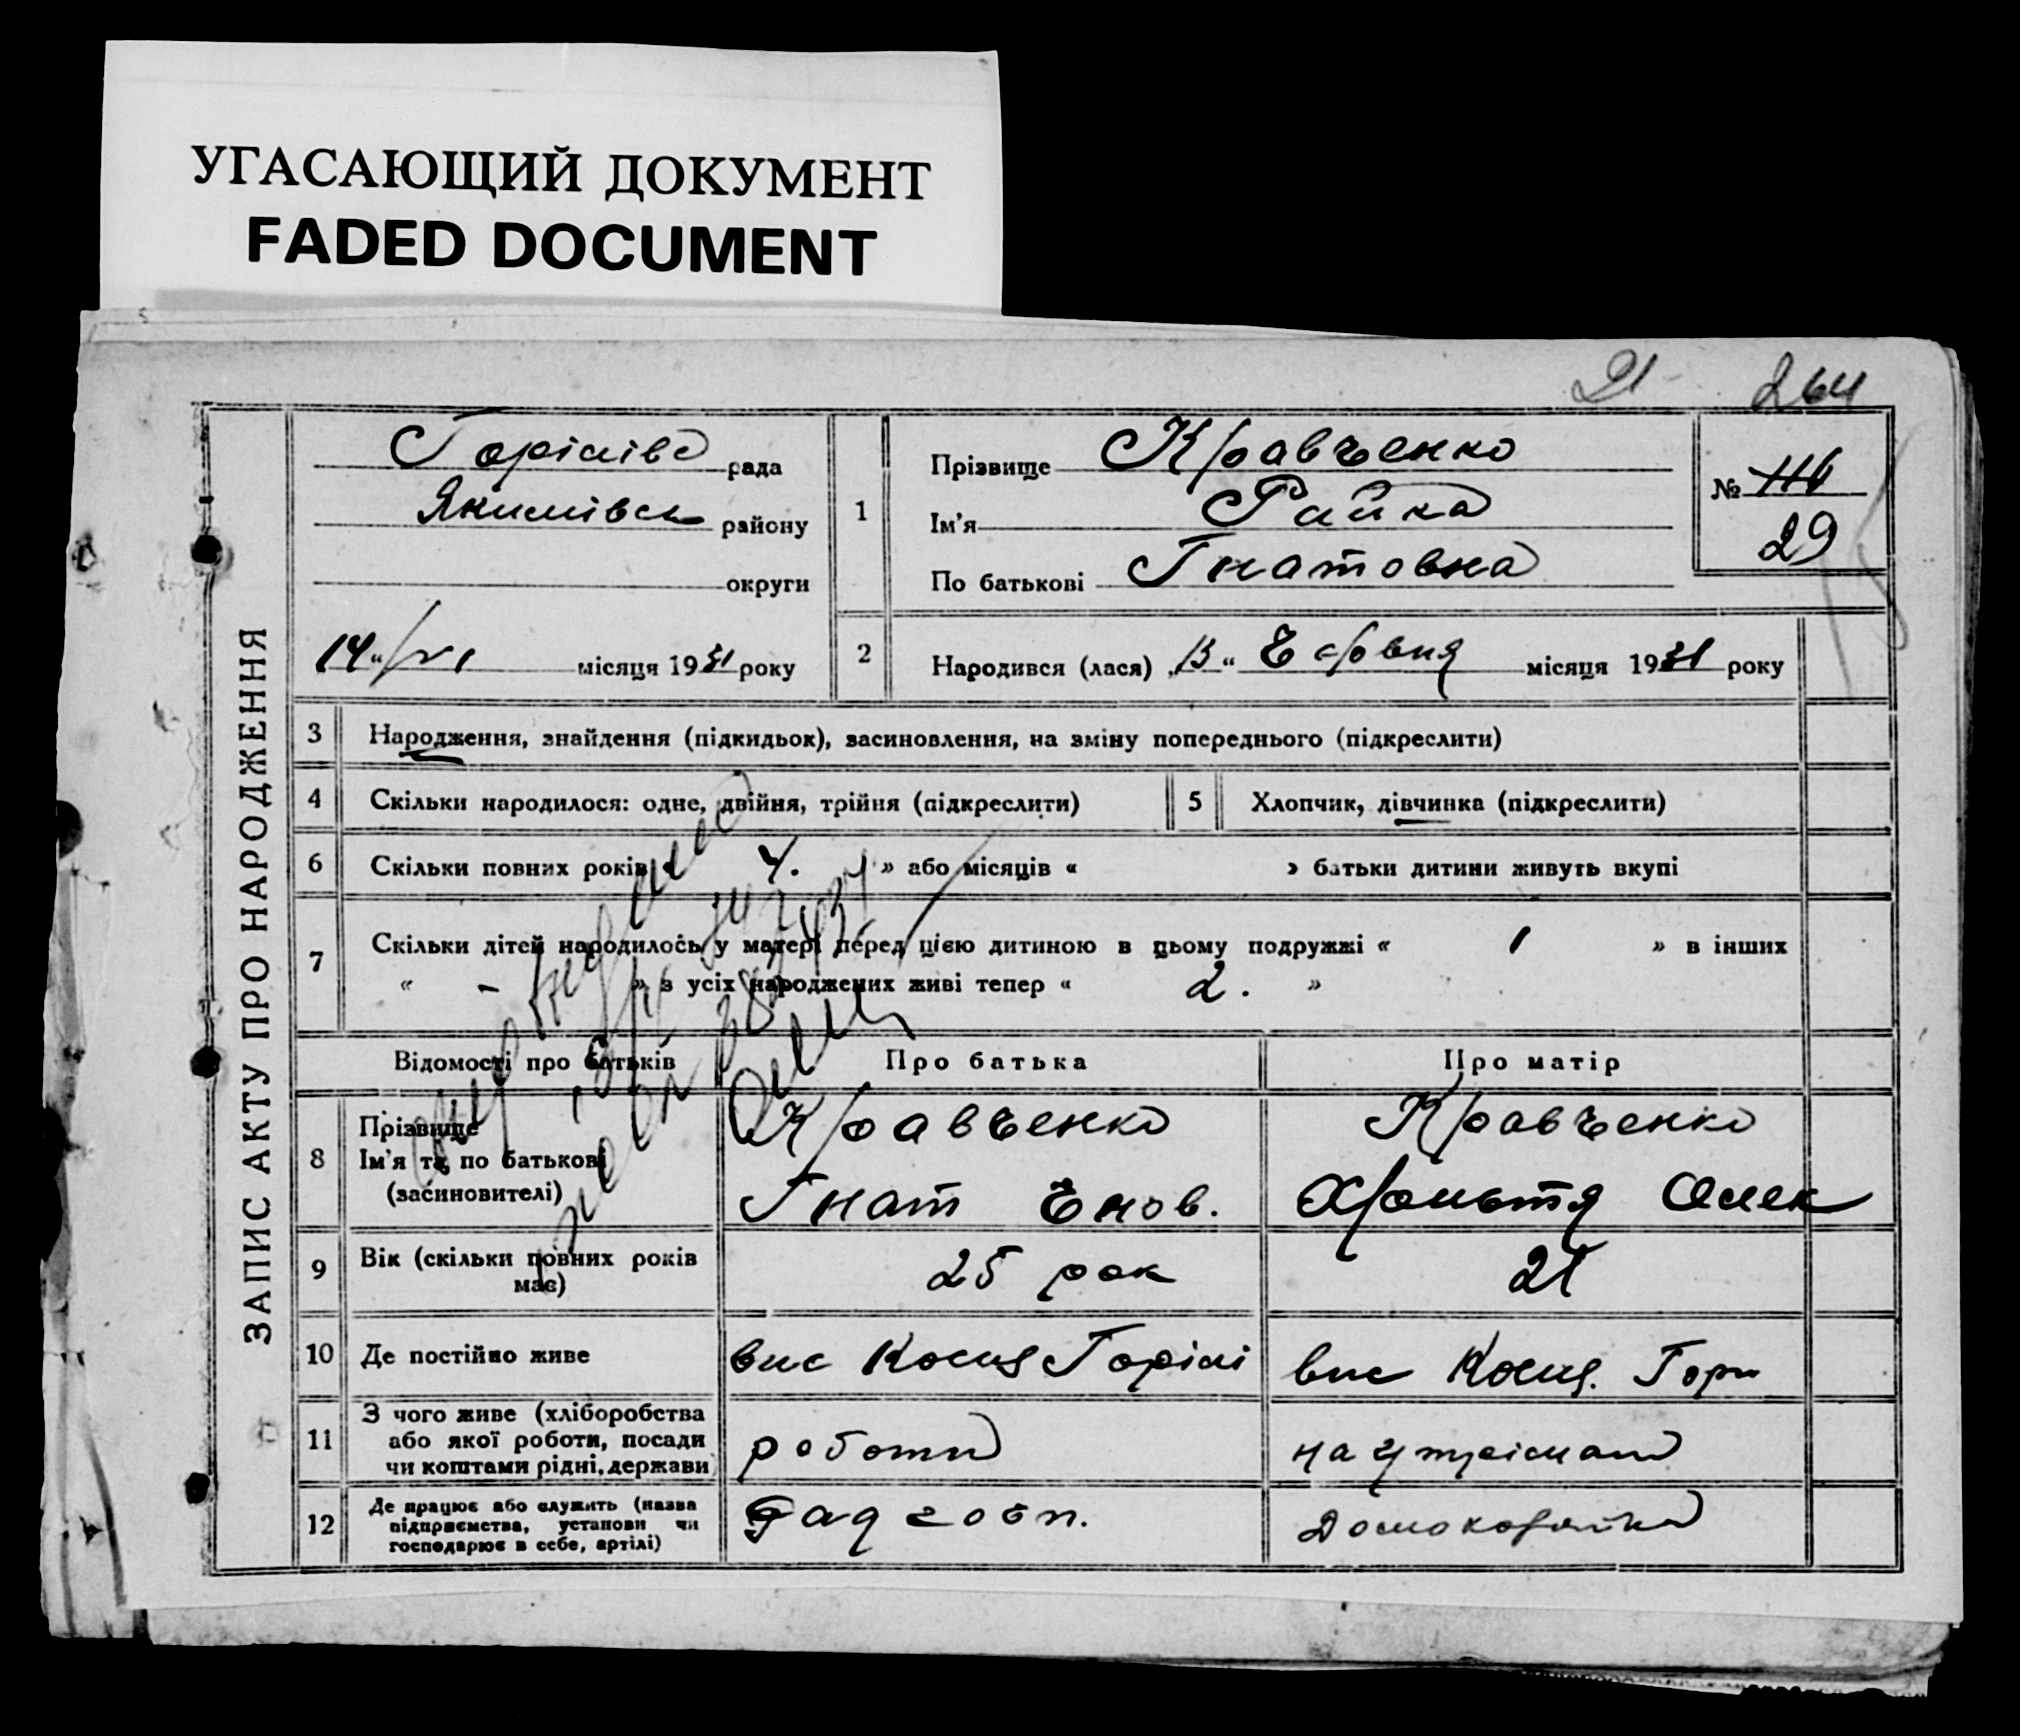 УГАСАЮЩИЙ ДОКУМЕНТ
FADED DOCUMENT
21 264
ЗАПИС АКТУ ПРО НАРОДЖЕННЯ
Горілівс рада
Якимівськ району
округи
14 "/VI місяця 1931 року
1
Прізвище Кравченко
Ім'я Райка
По батькові Гнатовна
№ 116
29
2 Народився (лася) „13" Червня місяця 1931 року
3 Народження, знайдення (підкидьок), засиновлення, на зміну попереднього (підкреслити)
4 Скільки народилося: одне, двійня, трійня (підкреслити)
5 Хлопчик, дівчинка (підкреслити)
6 Скільки повних років « 4. » або місяців « » батьки дитини живуть вкупі
7 Скільки дітей народилось у матері перед цією дитиною в цьому подружжі « 1 » в інших
« - » з усіх народжених живі тепер « 2. »
Відомості про батьків Про батька Про матір
8 Прізвище
Ім'я та по батькові
(засиновителі)
Кравченко
Гнат
Кравченко
Олек
9 Вік (скільки повних років
має)
25 рок
21
10 Де постійно живе
вис Горілі
вис Гори
11 З чого живе (хліборобства
або якої роботи, посади
чи коштами рідні, держави)
роботи
на утріман
12 Де працює або служить (назва
підприємства, установи чи
господарює в себе, артілі)
рад госп.
Домохозяйка